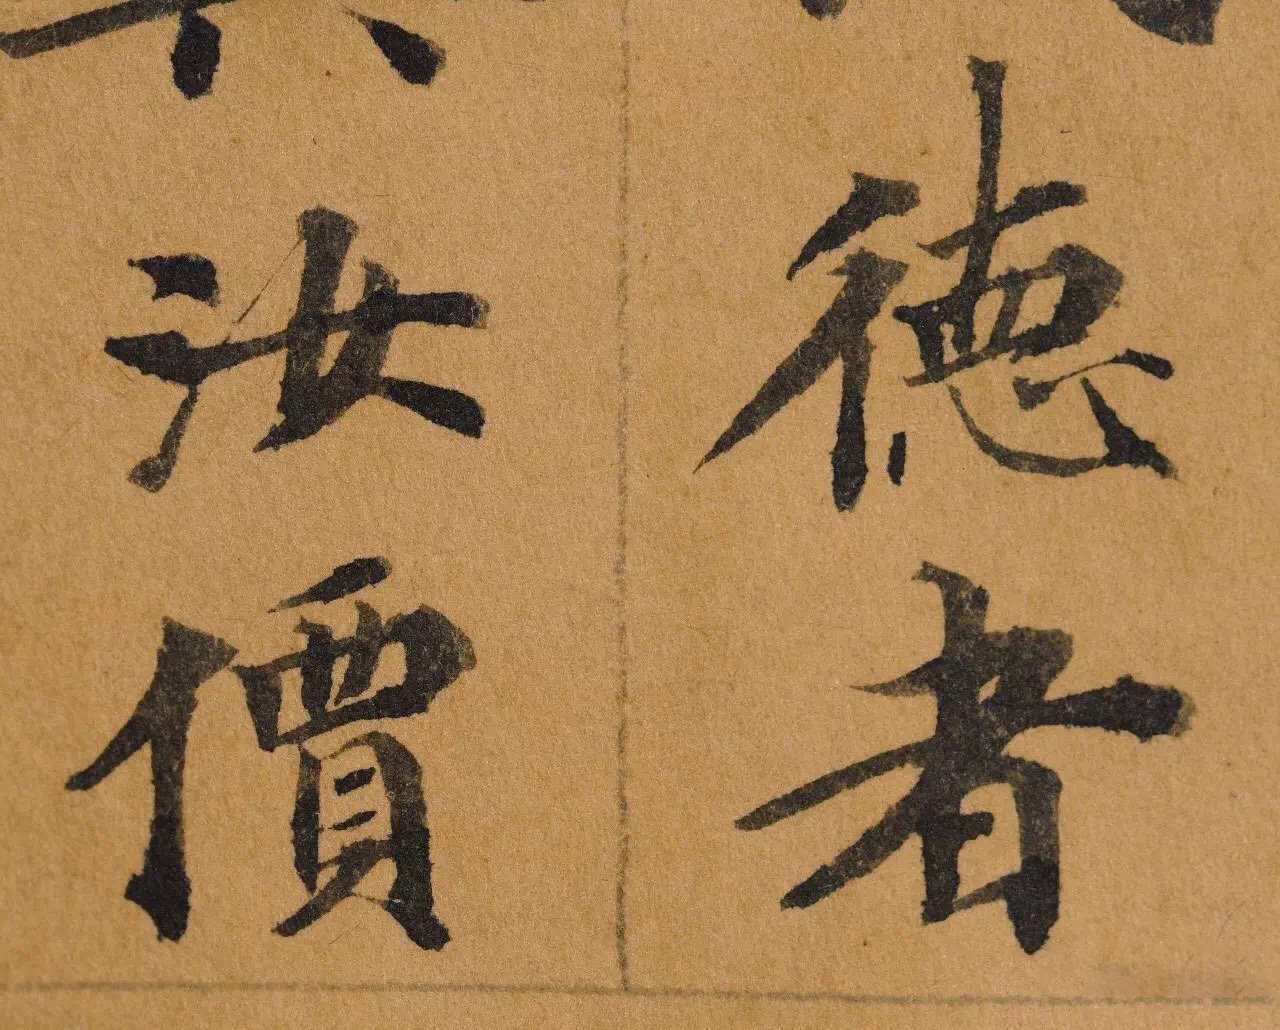 德者
汝價